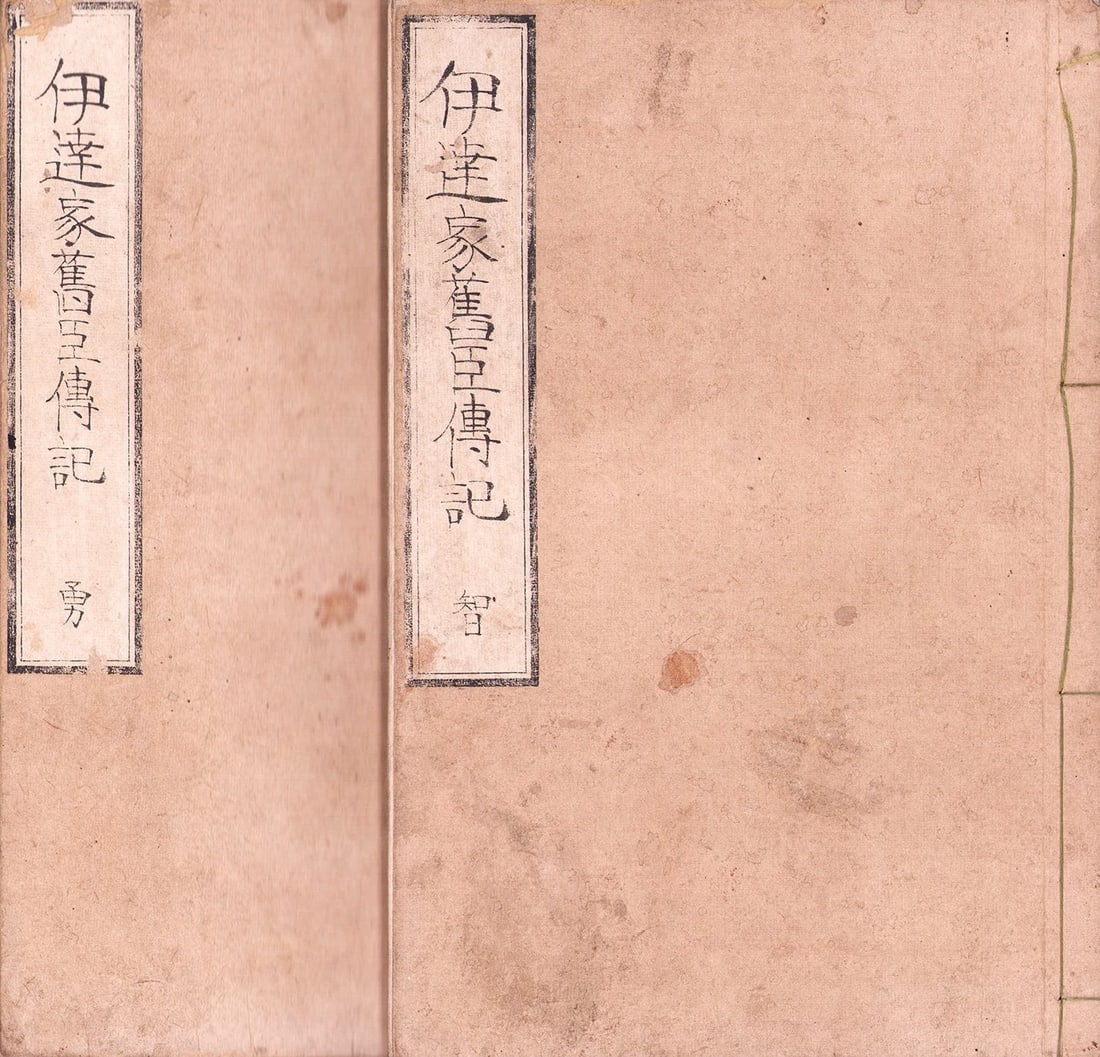 伊達家舊臣傳記
智
伊達家舊臣傳記
勇